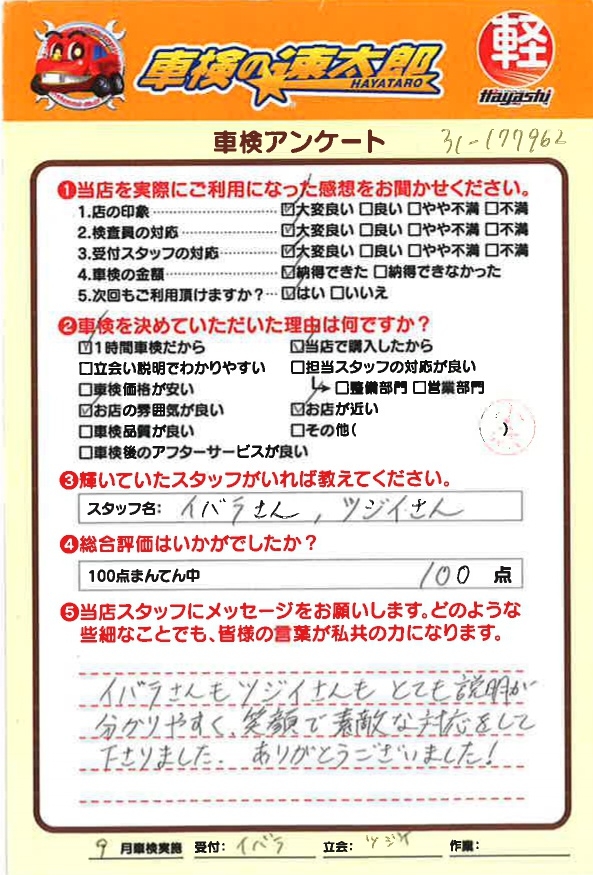 車検の速太郎
HAYATARO
軽
Hayashi
車検アンケート 31-177962
❶当店を実際にご利用になった感想をお聞かせください。
1.店の印象 ☑大変良い □良い □やや不満 □不満
2.検査員の対応 ☑大変良い □良い □やや不満 □不満
3.受付スタッフの対応 ☑大変良い □良い □やや不満 □不満
4.車検の金額 ☑納得できた □納得できなかった
5.次回もご利用頂けますか?… ☑はい □いいえ
❷車検を決めていただいた理由は何ですか?
☑1時間車検だから ☑当店で購入したから
□立会い説明でわかりやすい □担当スタッフの対応が良い
□車検価格が安い □整備部門 □営業部門
☑お店の雰囲気が良い ☑お店が近い
□車検品質が良い □その他( )
□車検後のアフターサービスが良い
❸輝いていたスタッフがいれば教えてください。
スタッフ名: イバラさん, ツジイさん
❹総合評価はいかがでしたか?
100点まんてん中 100 点
❺当店スタッフにメッセージをお願いします。どのような
些細なことでも、皆様の言葉が私共の力になります。
イバラさんもツジイさんも とても説明が
分かりやすく、笑顔で素敵な対応をして
下さりました。ありがとうございました!
9 月車検実施 受付: イバラ 立会: ツジイ 作業: